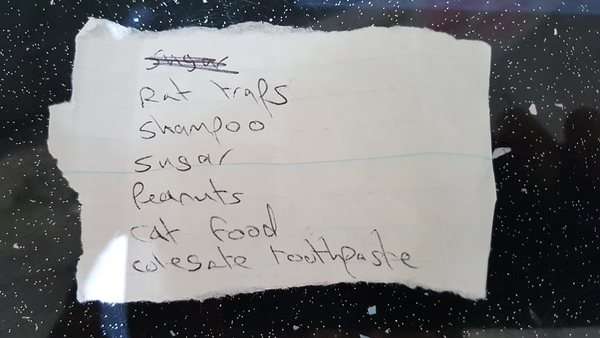 sugar
Rat traps
shampoo
sugar
Peanuts
cat food
colegate toothpaste